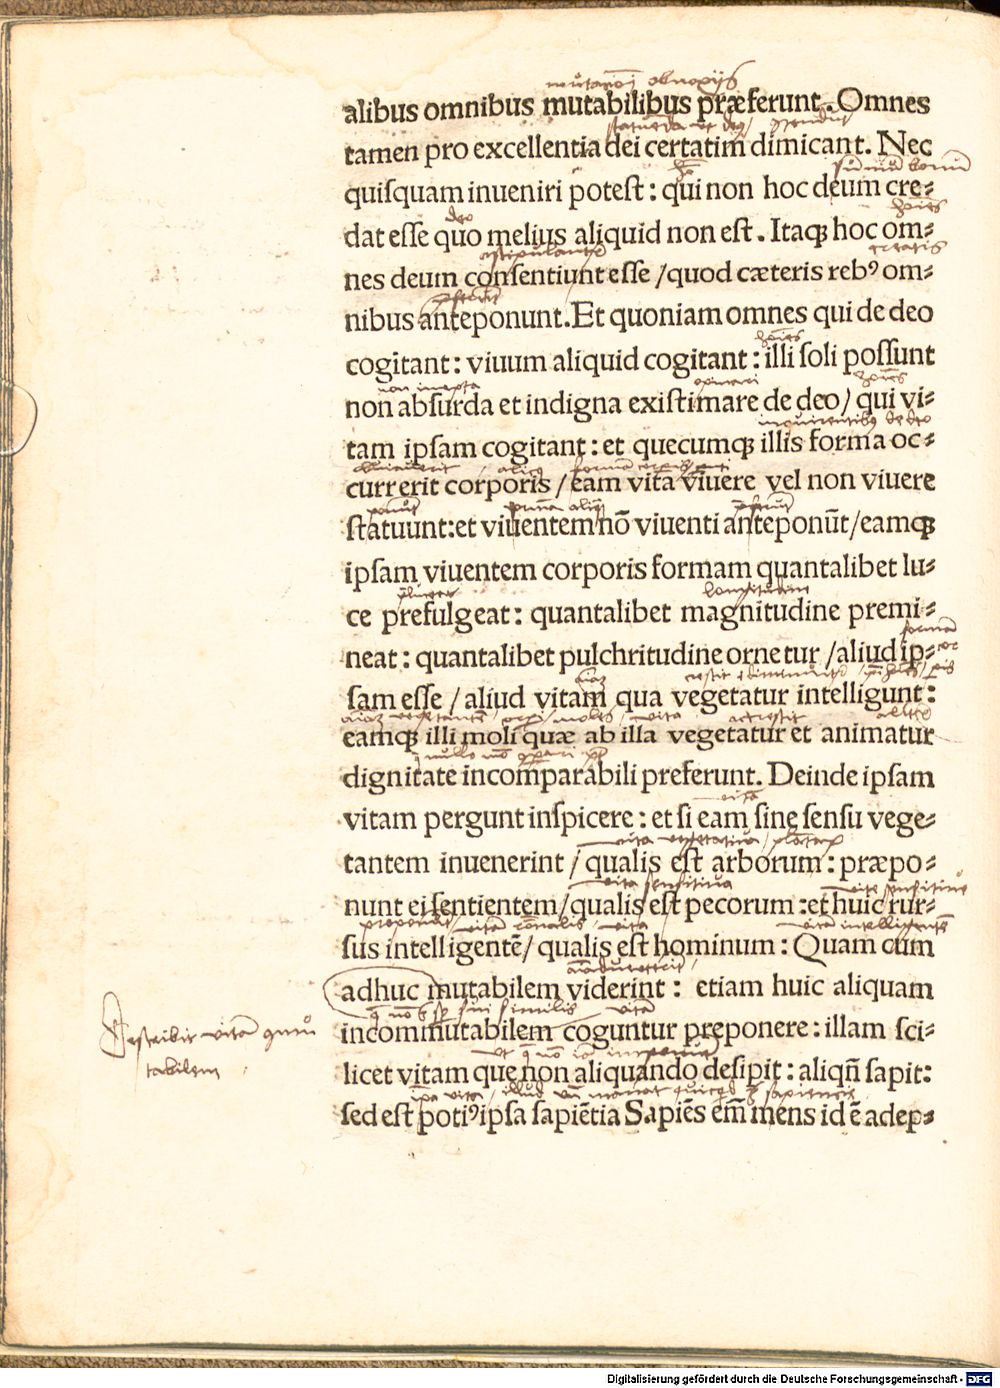 mutationi obnoxijs
alibus omnibus mutabilibus præferunt. Omnes
tamen pro excellentia dei certatim dimicant. Nec
quiſquam inueniri poteſt : qui non hoc deum cre⸗
hoīes
deo
dat eſſe quo melius aliquid non eſt. Itaqꝫ hoc om⸗
nes deum conſentiunt eſſe / quod cæteris rebꝰ om⸗
nibus anteponunt. Et quoniam omnes qui de deo
hoīes
cogitant : viuum aliquid cogitant : illi ſoli poſſunt
non inepta opinari hoīes
non abſurda et indigna exiſtimare de deo / qui vi⸗
inquirentibꝰ de deo
tam ipſam cogitant : et quecumqꝫ illis forma oc⸗
currerit corporis / eam vita viuere vel non viuere
ſtatuunt: et viuentem nō viuenti anteponūt / eamqꝫ
ipſam viuentem corporis formam quantalibet lu⸗
longitudine
ce prefulgeat : quantalibet magnitudine premi⸗
formam
neat : quantalibet pulchritudine ornetur / aliud ip⸗
ſam eſſe / aliud vitam qua vegetatur intelligunt :
eamqꝫ illi moli quæ ab illa vegetatur et animatur
dignitate incomparabili preferunt. Deinde ipſam
vitā
vitam pergunt inſpicere : et ſi eam ſine ſenſu vege⸗
vita vegetatiua
tantem inuenerint / qualis eſt arborum : præpo⸗
vita senſitiua vite senſitiue
nunt ei ſentientem / qualis eſt pecorum : et huic rur⸗
ſus intelligentē / qualis eſt hominum : Quam cum
adhuc mutabilem viderint : etiam huic aliquam
vitā
incommutabilem coguntur preponere : illam ſci⸗
licet vitam que non aliquando deſipit : aliqñ ſapit:
ſed eſt potiꝰ ipſa ſapiētia Sapiēs em̄ mens id ē adep⸗
Deſcribit vitā īmu
tabilem
Digitalisierung gefördert durch die Deutsche Forschungsgemeinschaft - DFG